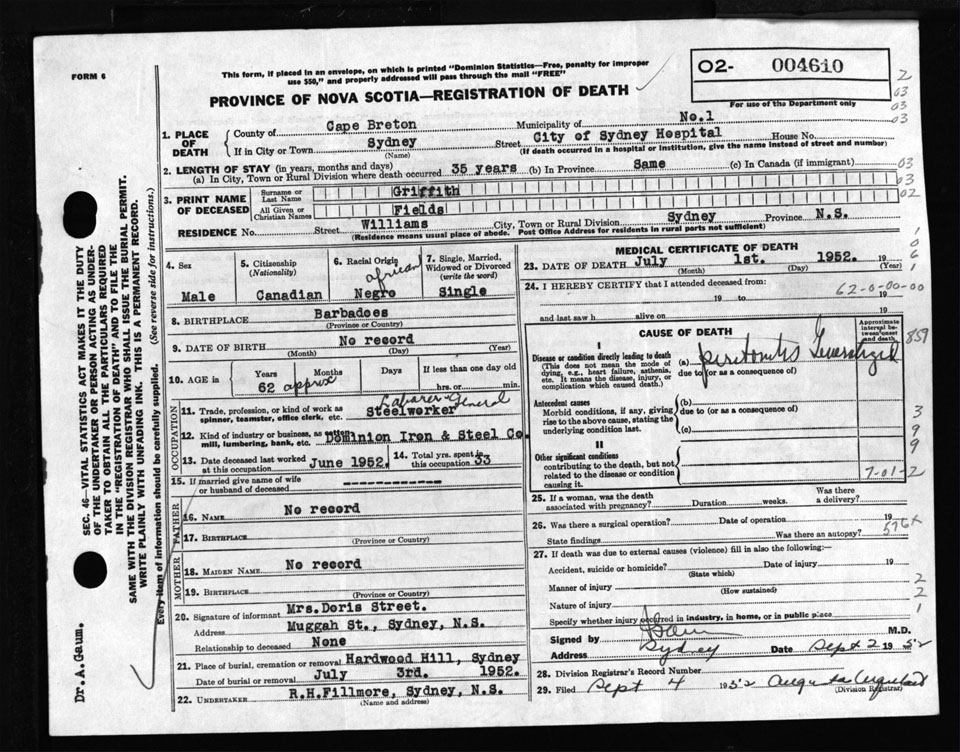 FORM 6
This form, if placed in an envelope, on which is printed "Dominion Statistics—Free, penalty for improper
use $50," and properly addressed will pass through the mail "FREE"
O2- 004610
For use of the Department only
PROVINCE OF NOVA SCOTIA—REGISTRATION OF DEATH
2
03
03
03
1. PLACE OF DEATH County of Cape Breton Municipality of No.1
If in City or Town Sydney (Name) Street City of Sydney Hospital House No.
(If death occurred in a hospital or institution, give the name instead of street and number)
2. LENGTH OF STAY (in years, months and days)
(a) In City, Town or Rural Division where death occurred 35 years (b) In Province Same (c) In Canada (if immigrant)
03
03
02
3. PRINT NAME OF DECEASED Surname or Last Name Griffith
All Given or Christian Names Fields
RESIDENCE No. Street Williams City, Town or Rural Division Sydney Province N.S.
(Residence means usual place of abode. Post Office Address for residents in rural parts not sufficient)
4. Sex Male
5. Citizenship (Nationality) Canadian
6. Racial Origin african Negro
7. Single, Married, Widowed or Divorced (write the word) Single
8. BIRTHPLACE Barbadoes
(Province or Country)
9. DATE OF BIRTH No record
(Month) (Day) (Year)
10. AGE in Years Months Days If less than one day
62 approx hrs. or min.
OCCUPATION
11. Trade, profession, or kind of work as spinner, teamster, office clerk, etc. Labarer General Steelworker
12. Kind of industry or business, as cotton mill, lumbering, bank, etc. Dominion Iron & Steel Co.
13. Date deceased last worked at this occupation June 1952.
14. Total yrs. spent in this occupation 33
15. If married give name of wife or husband of deceased ------------
FATHER
16. NAME No record
17. BIRTHPLACE
(Province or Country)
MOTHER
18. MAIDEN NAME No record
19. BIRTHPLACE
(Province or Country)
20. Signature of informant Mrs.Doris Street.
Address Muggah St., Sydney, N.S.
Relationship to deceased None
21. Place of burial, cremation or removal Hardwood Hill, Sydney
Date of burial or removal July 3rd. 1952.
22. UNDERTAKER R.H.Fillmore, Sydney, N.S.
(Name and address)
MEDICAL CERTIFICATE OF DEATH
23. DATE OF DEATH July 1st. 1952. 19
(Month) (Day) (Year)
24. I HEREBY CERTIFY that I attended deceased from:
19 to 19
62-0-00-00
and last saw h alive on 19
CAUSE OF DEATH
Approximate interval between onset and death
I
Disease or condition directly leading to death (a) peritonitis
(This does not mean the mode of dying, e.g., heart failure, asthenia, etc. It means the disease, injury, or complication which caused death.)
due to (or as a consequence of)
859
Antecedent causes (b)
Morbid conditions, if any, giving rise to the above cause, stating the underlying condition last.
due to (or as a consequence of)
(c)
3
9
9
II
Other significant conditions
contributing to the death, but not related to the disease or condition causing it.
7-01-2
25. If a woman, was the death associated with pregnancy? Duration weeks. Was there a delivery?
26. Was there a surgical operation? Date of operation 19
State findings Was there an autopsy?
576x
27. If death was due to external causes (violence) fill in also the following:—
Accident, suicide or homicide? Date of injury 19
(State which)
Manner of injury
(How sustained)
2
Nature of injury
2
Specify whether injury occurred in industry, in home, or in public place
1
Signed by M.D.
Address Sydney Date Sept 2 1952
28. Division Registrar's Record Number
29. Filed Sept 4 1952
(Division Registrar)
SEC. 46—VITAL STATISTICS ACT MAKES IT THE DUTY
OF THE UNDERTAKER OR PERSON ACTING AS UNDER-
TAKER TO OBTAIN ALL THE PARTICULARS REQUIRED
IN THE "REGISTRATION OF DEATH" AND TO FILE THE
SAME WITH THE DIVISION REGISTRAR WHO SHALL ISSUE THE BURIAL PERMIT.
WRITE PLAINLY WITH UNFADING INK. THIS IS A PERMANENT RECORD.
Every item of information should be carefully supplied. (See reverse side for instructions.)
Dr.A.Gaum.